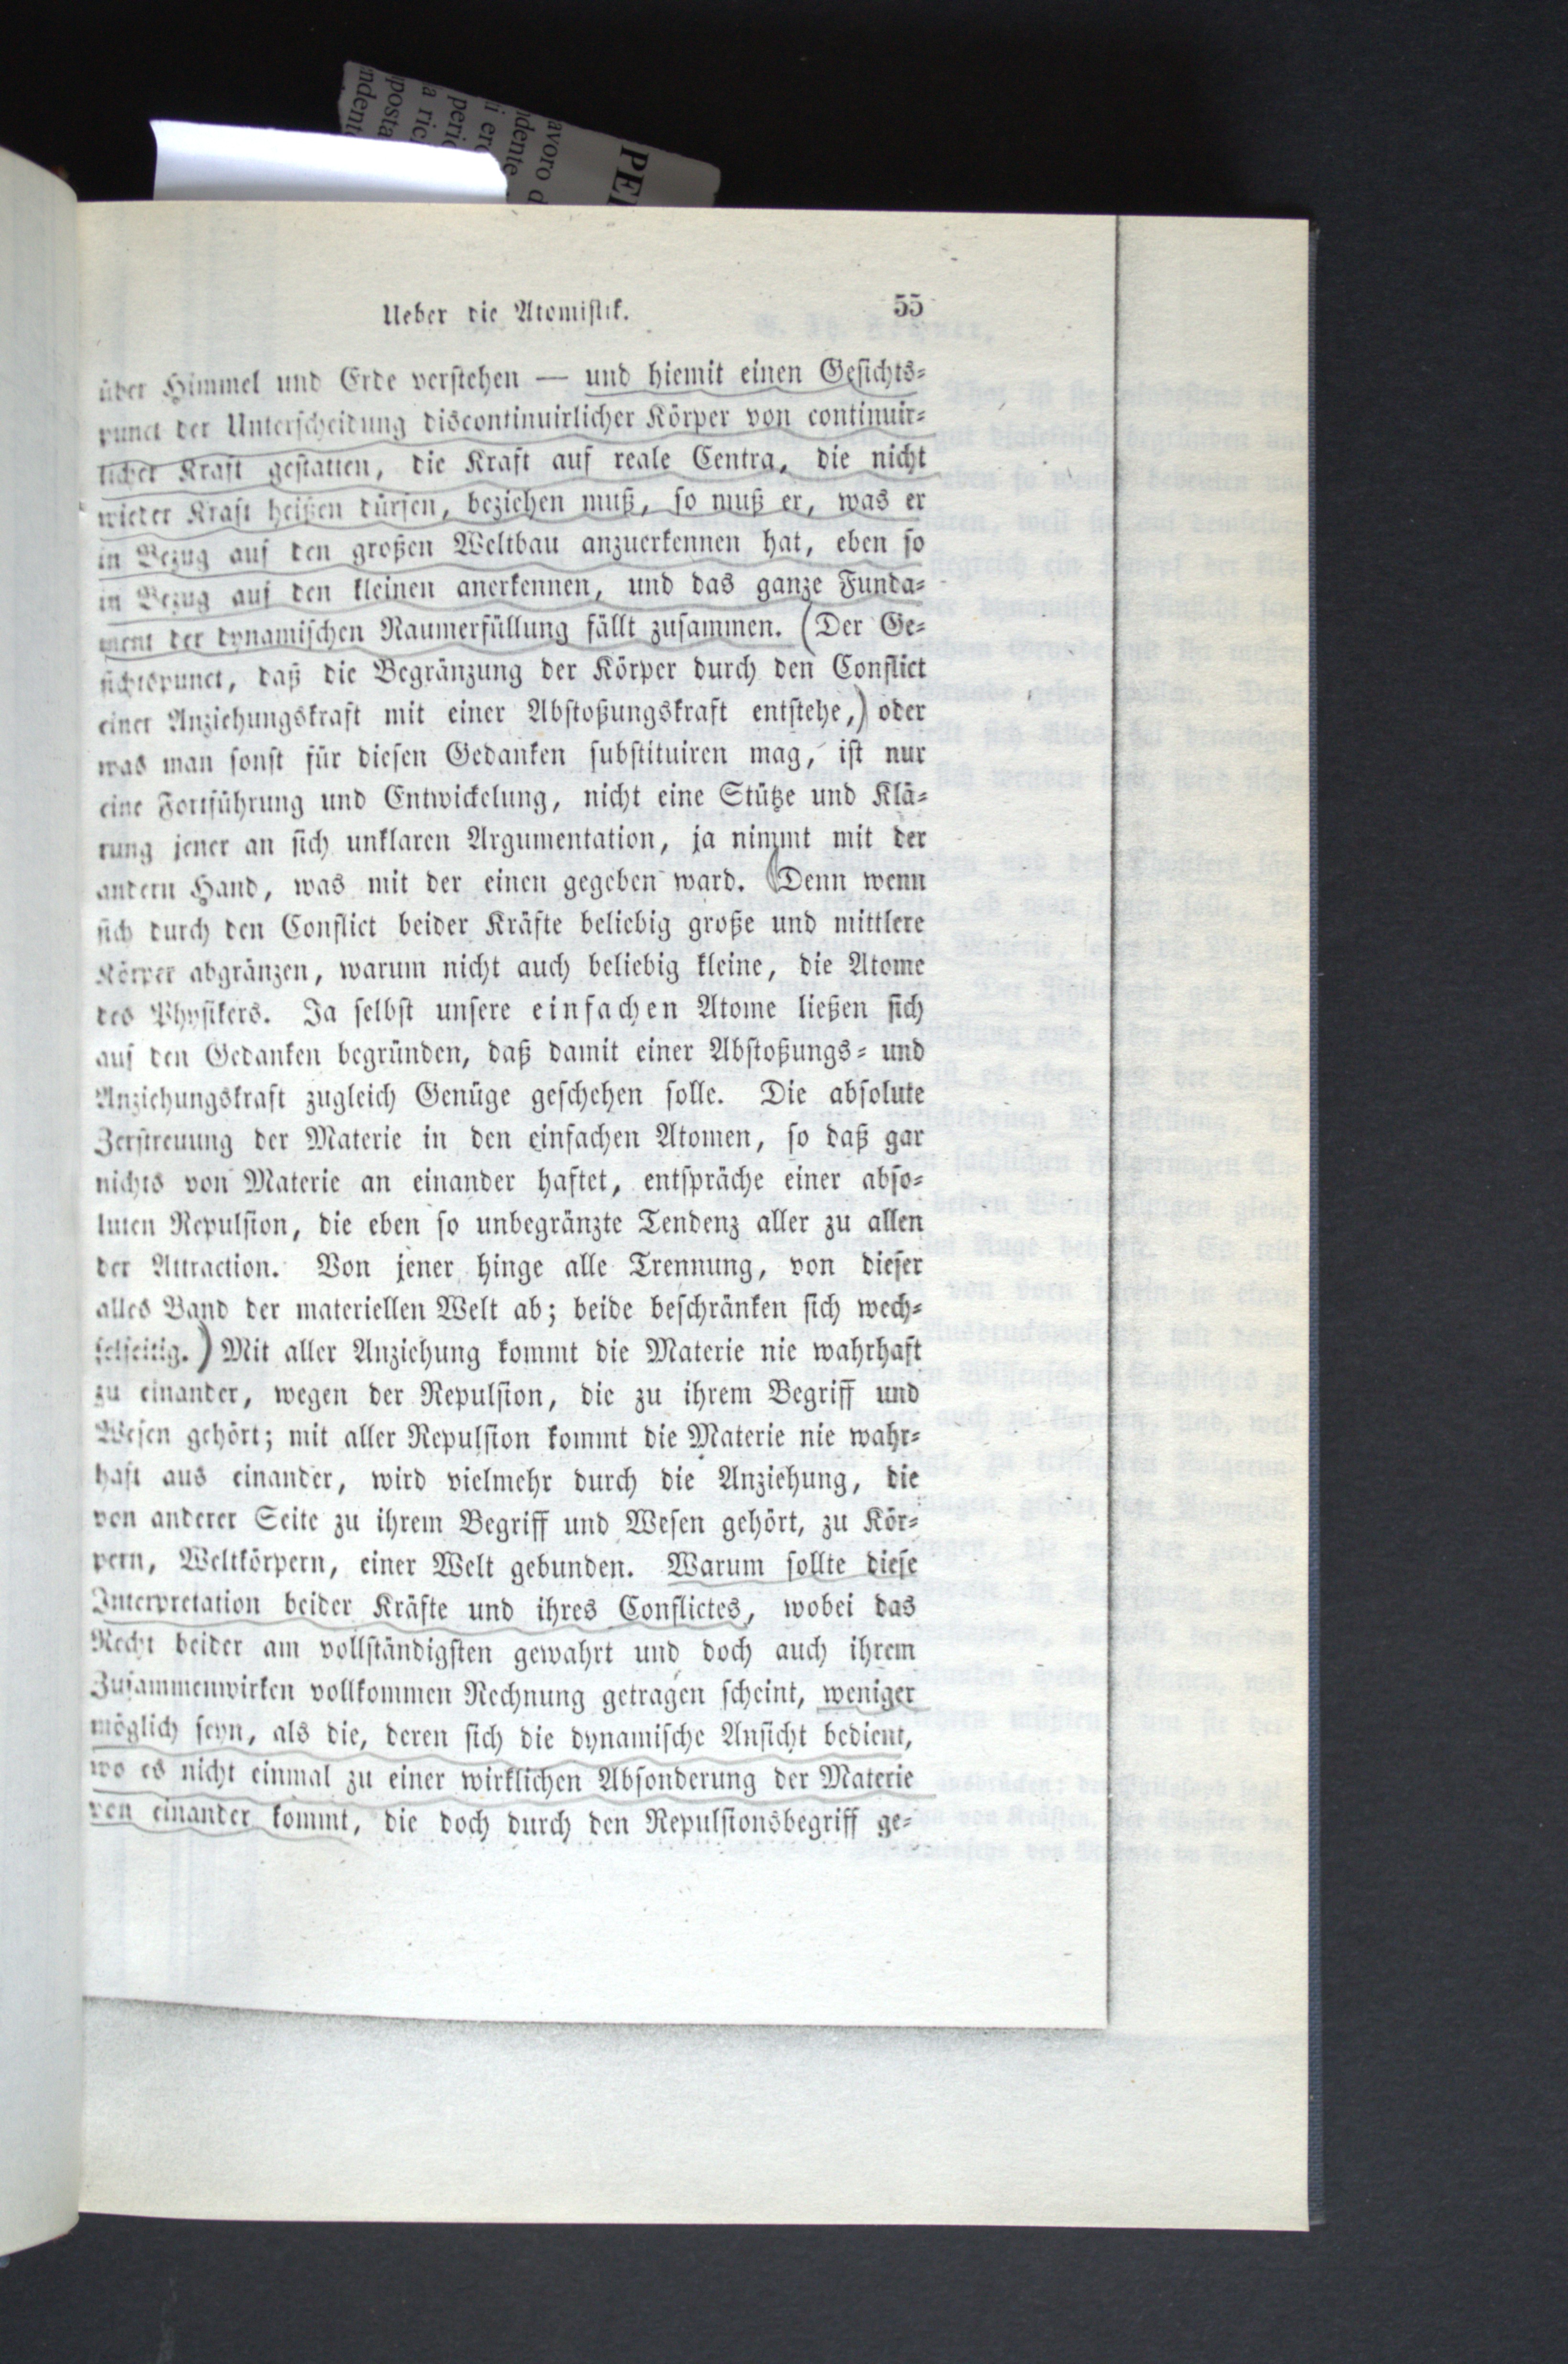 Ueber die Atomistik. 55
über Himmel und Erde verstehen — und hiemit einen Gesichts-
punct der Unterscheidung discontinuirlicher Körper von continuir-
licher Kraft gestatten, die Kraft auf reale Centra, die nicht
wieder Kraft heißen dürfen, beziehen muß, so muß er, was er
in Bezug auf den großen Weltbau anzuerkennen hat, eben so
in Bezug auf den kleinen anerkennen, und das ganze Funda-
ment der dynamischen Raumerfüllung fällt zusammen. (Der Ge-
sichtspunct, daß die Begränzung der Körper durch den Conflict
einer Anziehungskraft mit einer Abstoßungskraft entstehe,) oder
was man sonst für diesen Gedanken substituiren mag, ist nur
eine Fortführung und Entwickelung, nicht eine Stütze und Klä-
rung jener an sich unklaren Argumentation, ja nimmt mit der
andern Hand, was mit der einen gegeben ward. (Denn wenn
sich durch den Conflict beider Kräfte beliebig große und mittlere
Körper abgränzen, warum nicht auch beliebig kleine, die Atome
des Physikers. Ja selbst unsere einfachen Atome ließen sich
auf den Gedanken begründen, daß damit einer Abstoßungs- und
Anziehungskraft zugleich Genüge geschehen solle. Die absolute
Zerstreuung der Materie in den einfachen Atomen, so daß gar
nichts von Materie an einander haftet, entspräche einer abso-
luten Repulsion, die eben so unbegränzte Tendenz aller zu allen
der Attraction. Von jener hinge alle Trennung, von dieser
alles Band der materiellen Welt ab; beide beschränken sich wech-
selseitig.) Mit aller Anziehung kommt die Materie nie wahrhaft
zu einander, wegen der Repulsion, die zu ihrem Begriff und
Wesen gehört; mit aller Repulsion kommt die Materie nie wahr-
haft aus einander, wird vielmehr durch die Anziehung, die
von anderer Seite zu ihrem Begriff und Wesen gehört, zu Kör-
pern, Weltkörpern, einer Welt gebunden. Warum sollte diese
Interpretation beider Kräfte und ihres Conflictes, wobei das
Recht beider am vollständigsten gewahrt und doch auch ihrem
Zusammenwirken vollkommen Rechnung getragen scheint, weniger
möglich seyn, als die, deren sich die dynamische Ansicht bedient,
wo es nicht einmal zu einer wirklichen Absonderung der Materie
von einander kommt, die doch durch den Repulsionsbegriff ge-